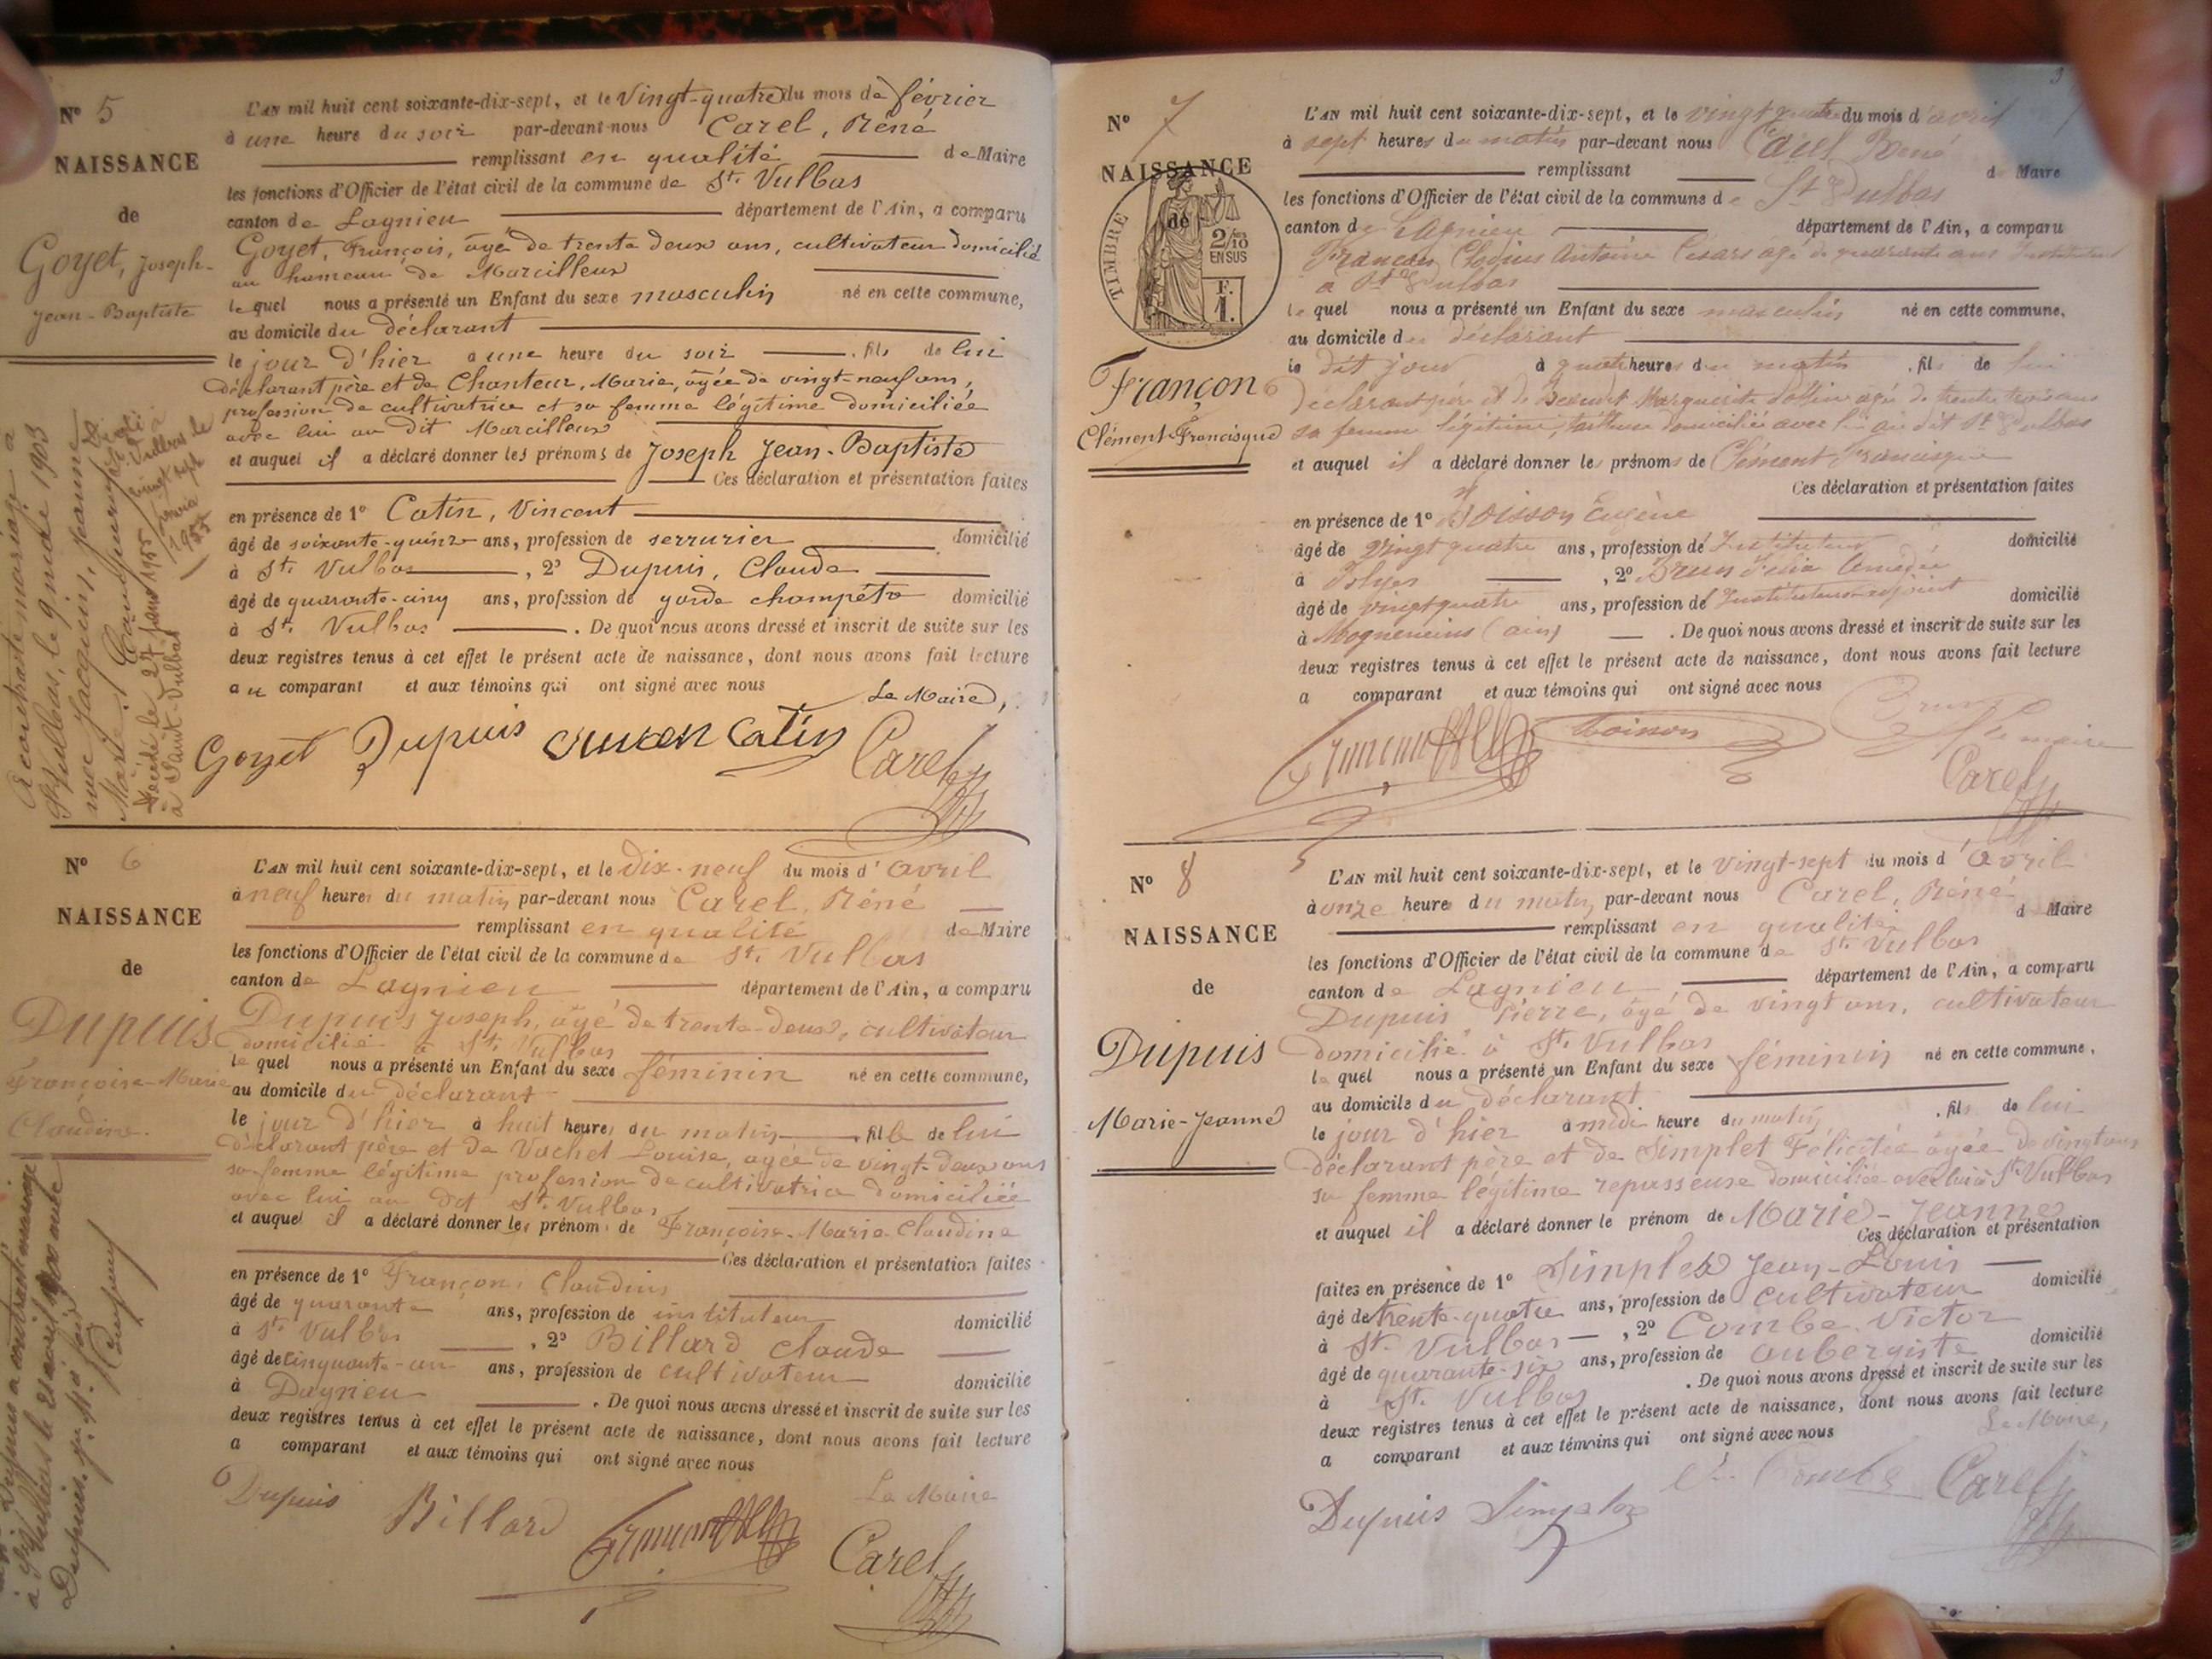 N° 5
NAISSANCE
de
Goyet, Joseph-
Jean-Baptiste
L'AN mil huit cent soixante-dix-sept, et le Vingt-quatre du mois de février
à une heure du soir par-devant nous Carel, Réné
remplissant en qualité de Maire
les fonctions d'Officier de l'état civil de la commune de St. Vulbas
canton de Lagnieu département de l'Ain, a comparu
Goyet, François, âgé de trente deux ans, cultivateur domicilié
au hameau de Marcilleux
le quel nous a présenté un Enfant du sexe masculin né en cette commune,
au domicile du déclarant
le jour d'hier a une heure du soir , fils de lui
déclarant père et de Chanteur, Marie, âgée de vingt-neuf ans,
profession de cultivatrice et sa femme légitime domiciliée
avec lui au dit Marcilleux
et auquel il a déclaré donner les prénoms de Joseph Jean-Baptiste
Ces déclaration et présentation faites
en présence de 1° Catin, Vincent
âgé de soixante-quinze ans, profession de serrurier domicilié
à St. Vulbas , 2° Dupuis, Claude
âgé de quarante-cinq ans, profession de garde champêtre domicilié
à St. Vulbas . De quoi nous avons dressé et inscrit de suite sur les
deux registres tenus à cet effet le présent acte de naissance, dont nous avons fait lecture
au comparant et aux témoins qui ont signé avec nous
Le Maire,
Goyet Dupuis Catin Carel
A contracté mariage à
St Vulbas, le 9 mai 1903
avec Jacquin, Jeanne
Marie
Décédé le 27 janv 1955
à Saint-Vulbas
N° 6
NAISSANCE
de
Dupuis
Françoise-Marie
Claudine.
L'AN mil huit cent soixante-dix-sept, et le dix-neuf du mois d'avril
à neuf heures du matin par-devant nous Carel, Réné
remplissant en qualité de Maire
les fonctions d'Officier de l'état civil de la commune de St. Vulbas
canton de Lagnieu département de l'Ain, a comparu
Dupuis Joseph, âgé de trente-deux, cultivateur
domicilié à St. Vulbas
le quel nous a présenté un Enfant du sexe féminin né en cette commune,
au domicile du déclarant
le jour d'hier à huit heures du matin , fille de lui
déclarant père et de Vachet Louise, agée de vingt-deux ans
sa femme légitime profession de cultivatrice domiciliée
avec lui au dit St. Vulbas
et auquel il a déclaré donner les prénoms de Françoise-Marie-Claudine
Ces déclaration et présentation faites
en présence de 1° Françon, Claudius
âgé de quarante ans, profession de instituteur domicilié
à St. Vulbas , 2° Billard Claude
âgé de cinquante-un ans, profession de cultivateur domicilié
à Dagnieu . De quoi nous avons dressé et inscrit de suite sur les
deux registres tenus à cet effet le présent acte de naissance, dont nous avons fait lecture
a comparant et aux témoins qui ont signé avec nous
Le Maire
Dupuis Billard Carel
Dupuis a contracté mariage
à St Vulbas le 21 avril
N° 7
NAISSANCE
de
TIMBRE
2/10 EN SUS
F. 1.
Françon
Clément-Francisque
L'AN mil huit cent soixante-dix-sept, et le vingt quatre du mois d'avril
à sept heures du matin par-devant nous Carel Réné
remplissant d Maire
les fonctions d'Officier de l'état civil de la commune de St Vulbas
canton de Lagnieu département de l'Ain, a comparu
Françon Claudius Antoine César agé de quarante ans Instituteur
a St Vulbas
le quel nous a présenté un Enfant du sexe masculin né en cette commune,
au domicile du déclarant
le dit jour à quatre heures du matin , fils de lui
déclarant père et de Marguerite agée de trente trois ans
sa femme légitime, domiciliée avec lui au dit St Vulbas
et auquel il a déclaré donner les prénoms de Clément Francisque
Ces déclaration et présentation faites
en présence de 1° Loisson Eugène
âgé de vingt quatre ans, profession de Instituteur domicilié
à , 2° Brun Félix Amédée
âgé de vingt quatre ans, profession de Instituteur adjoint domicilié
à Mogneneins (ain) . De quoi nous avons dressé et inscrit de suite sur les
deux registres tenus à cet effet le présent acte de naissance, dont nous avons fait lecture
a comparant et aux témoins qui ont signé avec nous
Brun
Le maire
Carel
N° 8
NAISSANCE
de
Dupuis
Marie-Jeanne
L'AN mil huit cent soixante-dix-sept, et le vingt-sept du mois d'avril
à onze heures du matin par-devant nous Carel, Réné
remplissant en qualité d Maire
les fonctions d'Officier de l'état civil de la commune de St. Vulbas
canton de Lagnieu département de l'Ain, a comparu
Dupuis Pierre, âgé de vingt ans, cultivateur
domicilié à St. Vulbas
le quel nous a présenté un Enfant du sexe féminin né en cette commune,
au domicile du déclarant
le jour d'hier à midi heure du matin , fil de lui
déclarant père et de Simplet Félicitée âgée de vingt ans
sa femme légitime repasseuse domiciliée avec lui à St. Vulbas
et auquel il a déclaré donner le prénom de Marie-Jeanne
Ces déclaration et présentation
faites en présence de 1° Simplet Jean-Louis
âgé de trente-quatre ans, profession de cultivateur domicilié
à St. Vulbas , 2° Combe Victor
âgé de quarante-six ans, profession de aubergiste domicilié
à St. Vulbas . De quoi nous avons dressé et inscrit de suite sur les
deux registres tenus à cet effet le présent acte de naissance, dont nous avons fait lecture
a comparant et aux témoins qui ont signé avec nous
Le Maire,
Dupuis Simplet Combe Carel